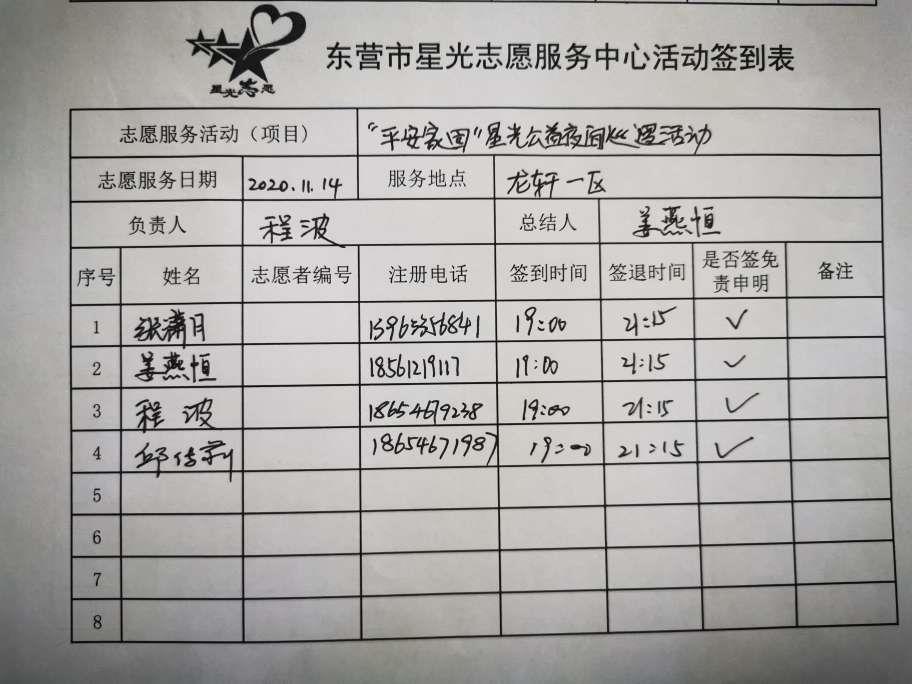 星光志愿
东营市星光志愿服务中心活动签到表
志愿服务活动（项目） “平安家园”星光公益夜间巡逻活动
志愿服务日期 2020.11.14 服务地点 龙轩一区
负责人 程波 总结人 姜燕恒
序号 姓名 志愿者编号 注册电话 签到时间 签退时间 是否签免责申明 备注
1 张潇月 15965356841 19:00 21:15 ✓
2 姜燕恒 18561219117 19:00 21:15 ✓
3 程波 18654679238 19:00 21:15 ✓
4 邱传莉 18654671987 19:00 21:15 ✓
5
6
7
8